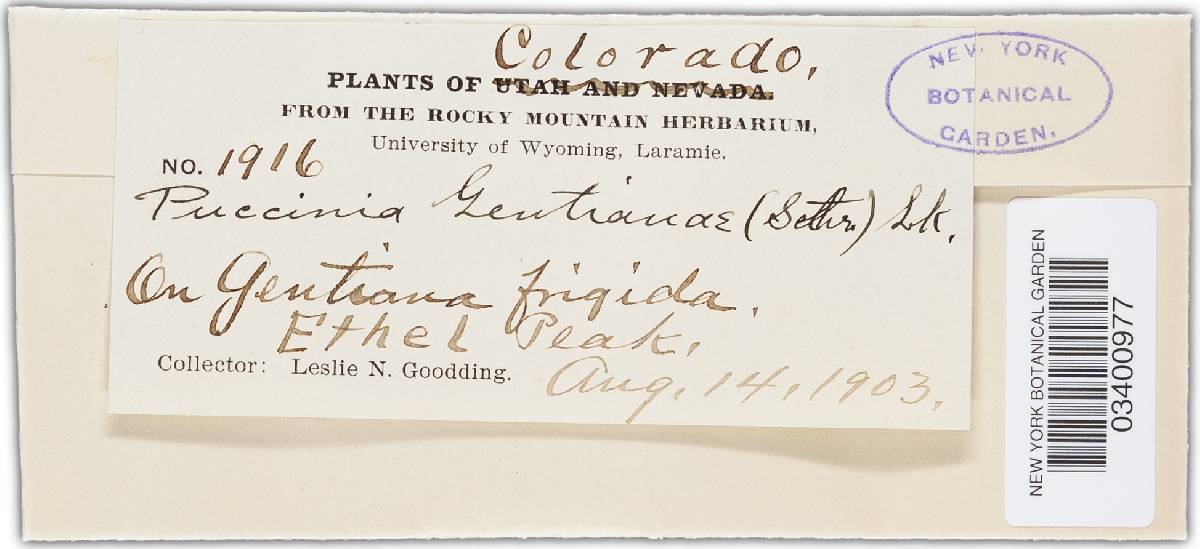 Colorado.
PLANTS OF UTAH AND NEVADA.
FROM THE ROCKY MOUNTAIN HERBARIUM,
University of Wyoming, Laramie.
NO. 1916
Puccinia Gentianae (Schr.) Lk.
On Gentiana frigida.
Ethel Peak.
Collector: Leslie N. Goodding.
Aug. 14, 1903.
NEW YORK
BOTANICAL
GARDEN.
NEW YORK BOTANICAL GARDEN
03400977